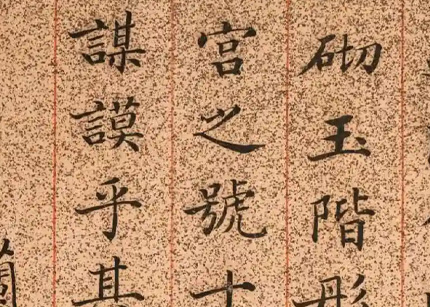 砌玉階彤
宮之號
謀謨乎其